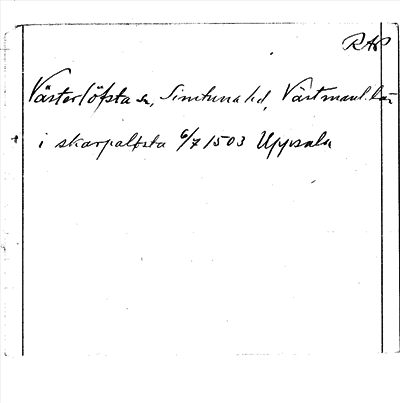 RAP
Västerlöfsta sn, Simtuna hd, Västmanl. län
i skarpalbsta 6/7 1503 Uppsala